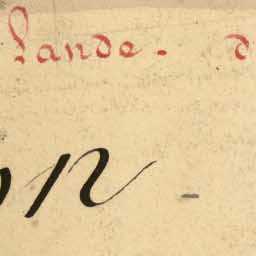 lande. d
on -